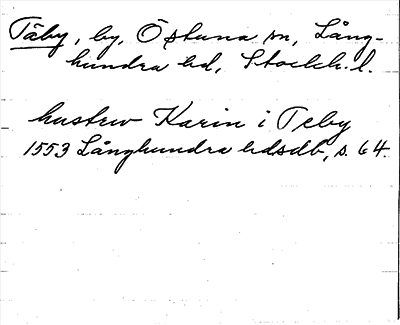 Täby, by, Östuna sn, Lång-
hundra hd, Stockh. l.
hustrw Karin i Teby
1553 Långhundra hdsdb, s. 64.